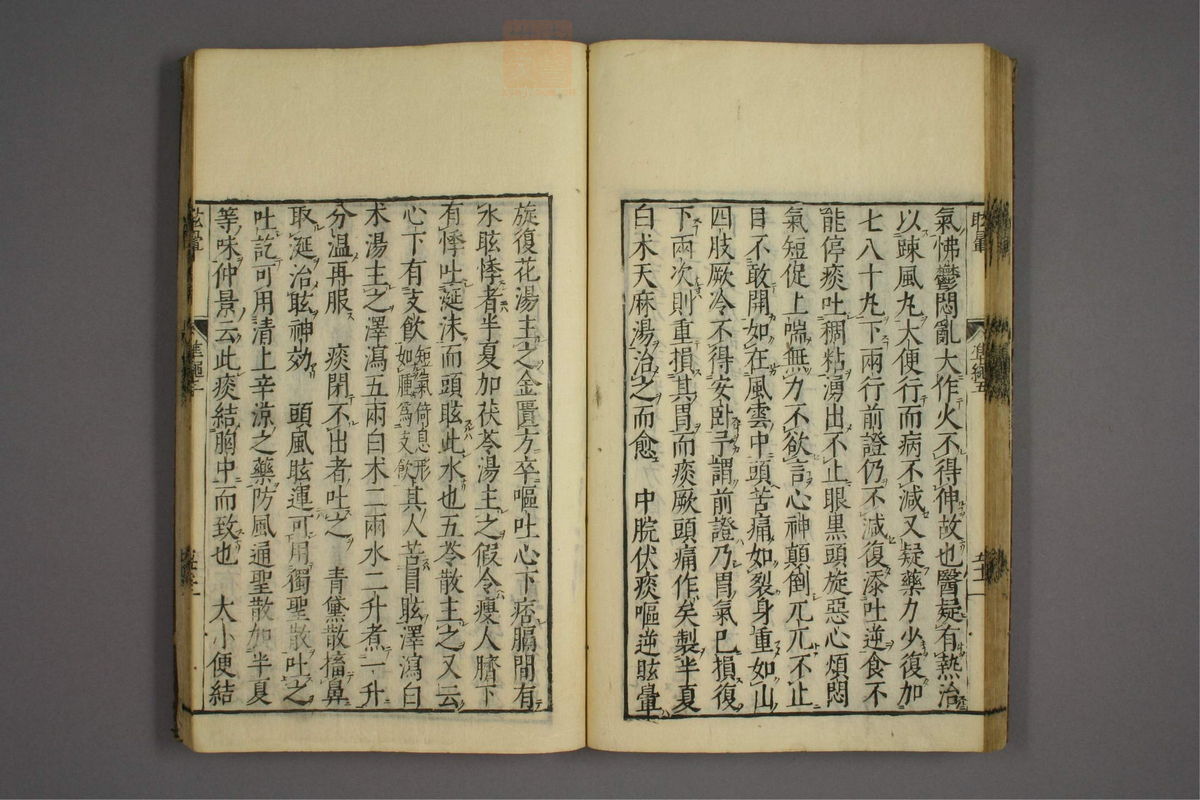 氣怫鬱悶亂大作火不得伸故也醫疑有熱治
以踈風丸大便行而病不減又疑藥力少復加
七八十丸下兩行前證仍不減復添吐逆食不
能停痰吐稠粘湧出不止眼黑頭旋惡心煩悶
氣短促上喘無力不欲言心神顛倒兀兀不止
目不敢開如在風雲中頭苦痛如裂身重如山
四肢厥冷不得安臥予謂前證乃胃氣已損復
下兩次則重損其胃而痰厥頭痛作矣製半夏
白朮天麻湯治之而愈　中脘伏痰嘔逆眩暈
旋復花湯主之金匱方卒嘔吐心下痞膈間有
水眩悸者半夏加茯苓湯主之假令瘦人臍下
有悸吐涎沫而頭眩此水也五苓散主之又云
心下有支飲短氣倚息形如腫為支飲其人苦冒眩澤瀉白
朮湯主之澤瀉五兩白朮二兩水二升煮一升
分溫再服　痰閉不出者吐之　青黛散搐鼻
取涎治眩神効　頭風眩運可用獨聖散吐之
吐訖可用清上辛涼之藥防風通聖散加半夏
等味仲景云此痰結胸中而致也　大小便結